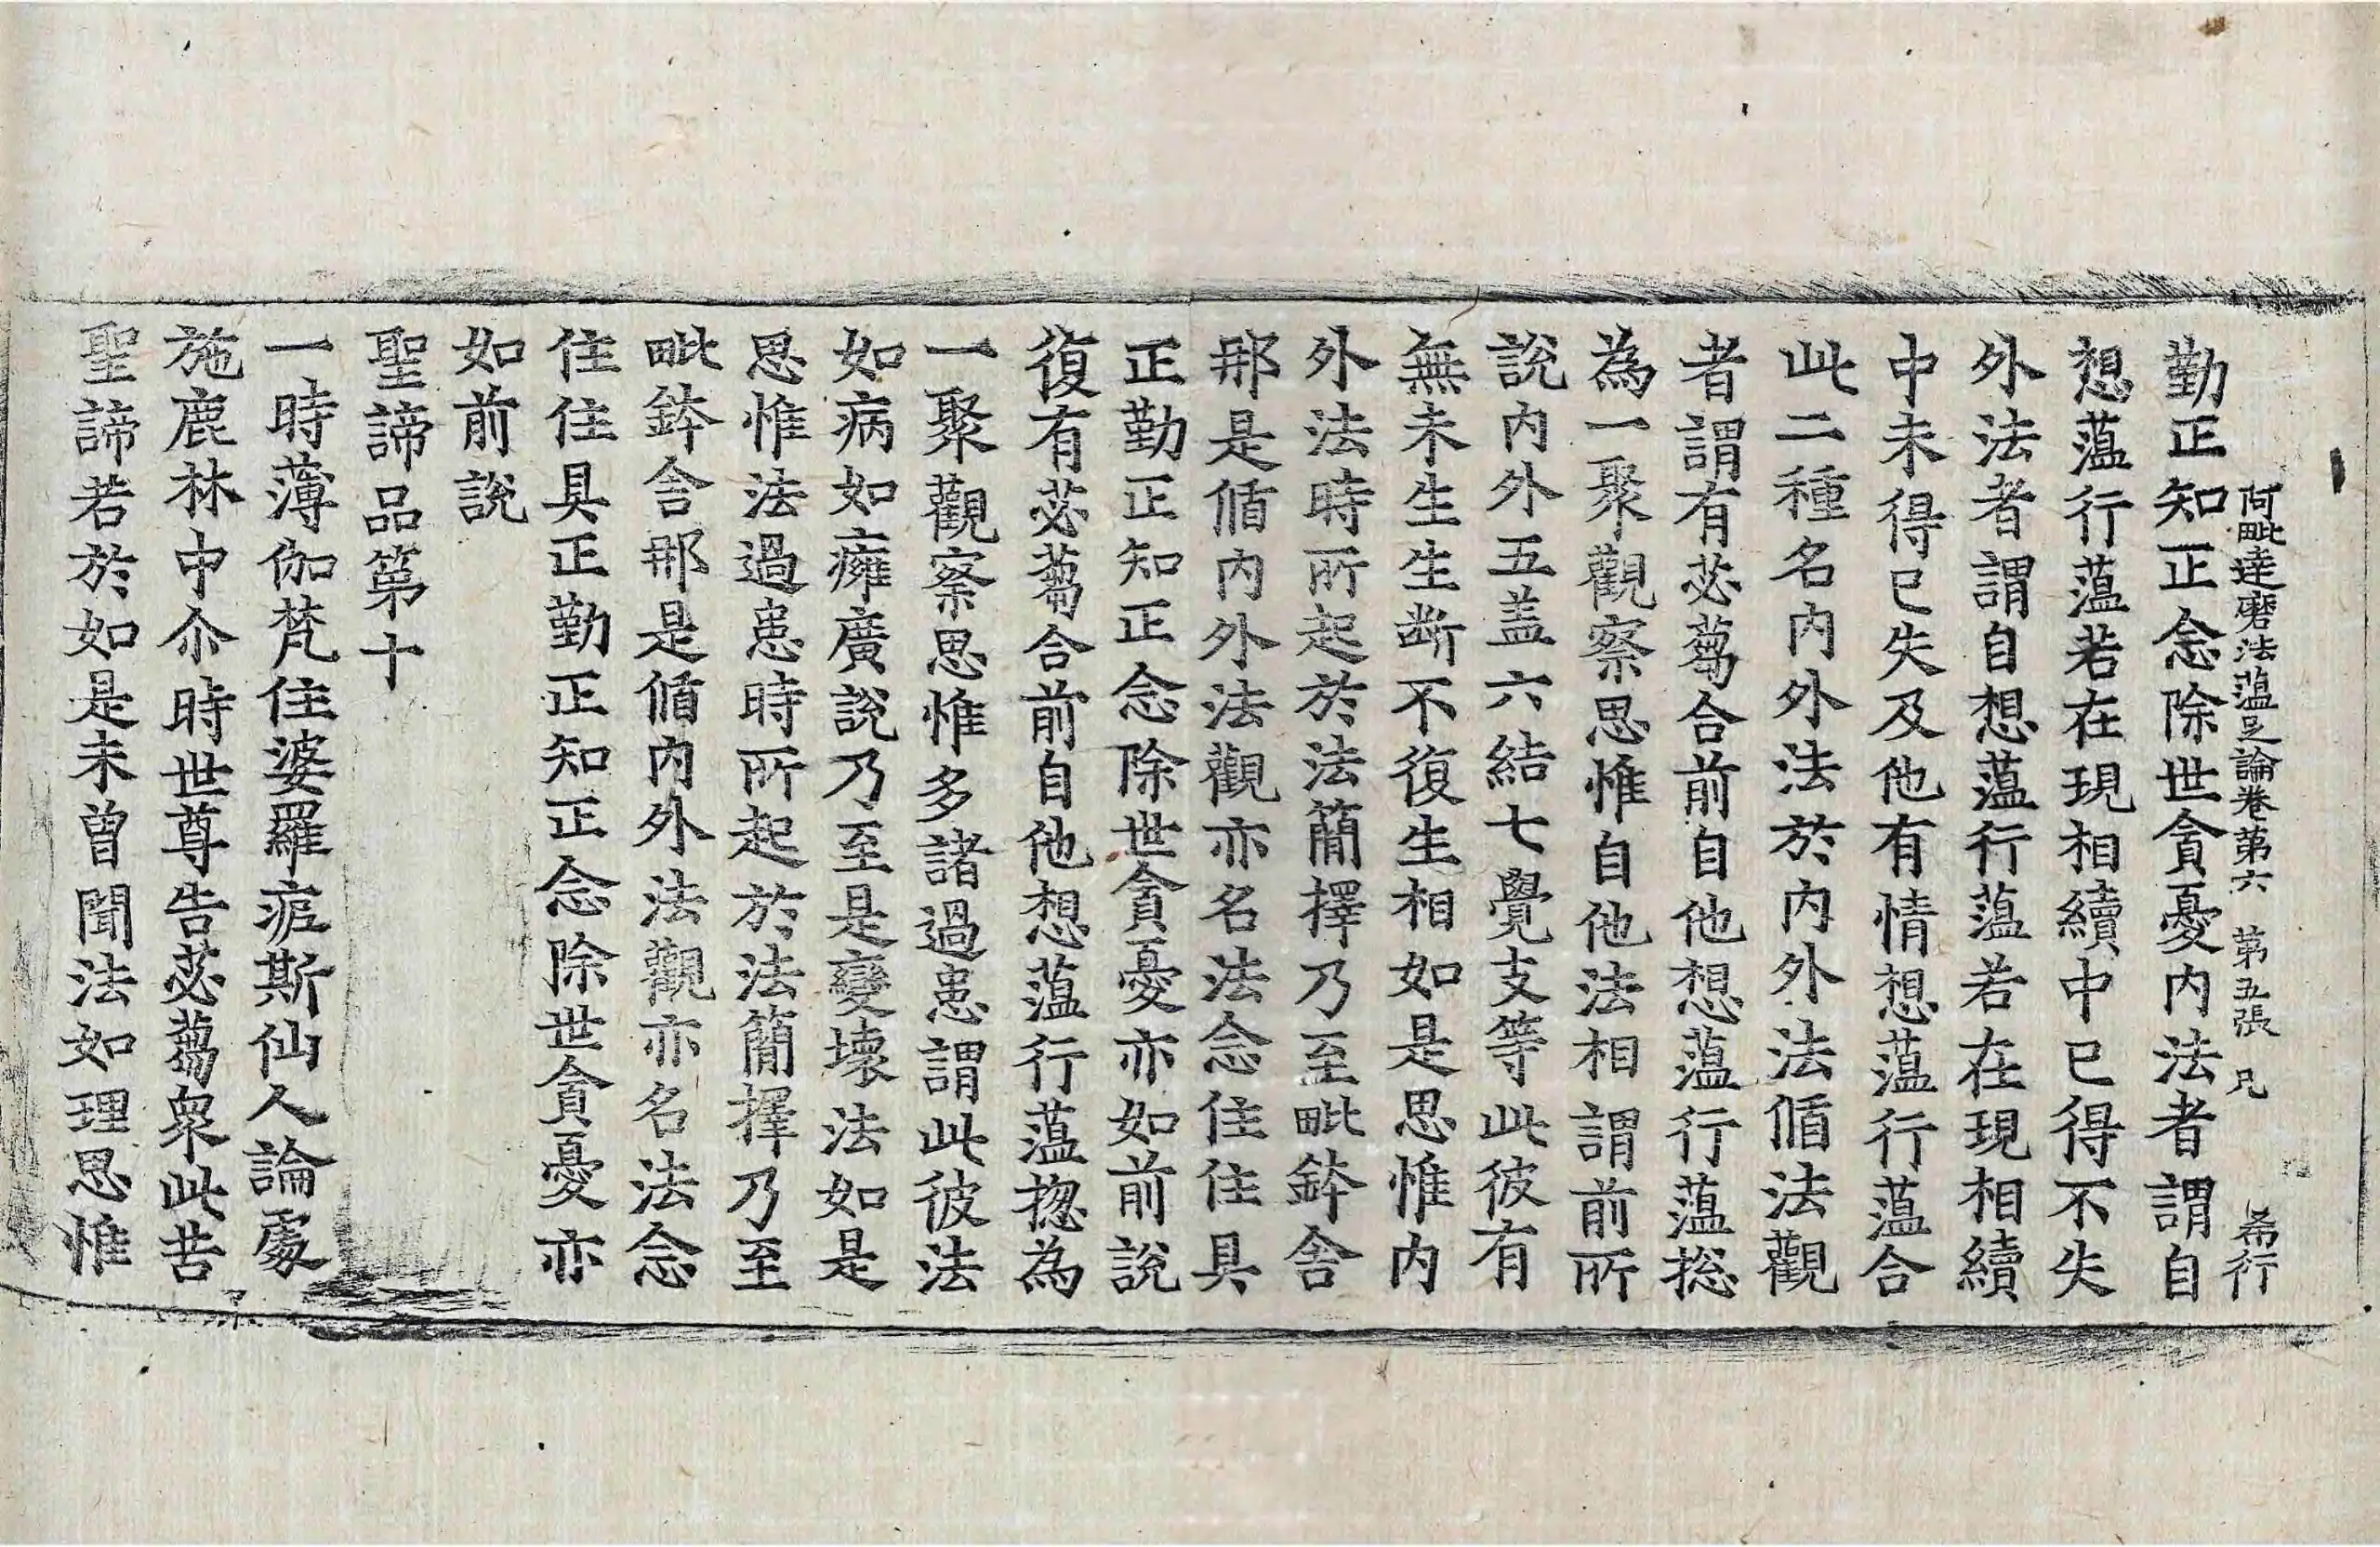 阿毗達磨法蘊足論卷第六 第五張 凡 希行
勤正知正念除世貪憂內法者謂自
想蘊行蘊若在現相續中已得不失
外法者謂自想蘊行蘊若在現相續
中未得已失及他有情想蘊行蘊合
此二種名內外法於內外法循法觀
者謂有苾蒭合前自他想蘊行蘊捴
為一聚觀察思惟自他法相謂前所
說內外五盖六結七覺支等此彼有
無未生生断不復生相如是思惟內
外法時所起於法簡擇乃至毗鉢舍
那是循內外法觀亦名法念住住具
正勤正知正念除世貪憂亦如前說
復有苾蒭合前自他想蘊行蘊捴為
一聚觀察思惟多諸過患謂此彼法
如病如癰廣說乃至是變壞法如是
思惟法過患時所起於法簡擇乃至
毗鉢舍那是循內外法觀亦名法念
住住具正勤正知正念除世貪憂亦
如前說
聖諦品第十
一時薄伽梵住婆羅痆斯仙人論處
施鹿林中尒時世尊告苾蒭衆此苦
聖諦若於如是未曾聞法如理思惟